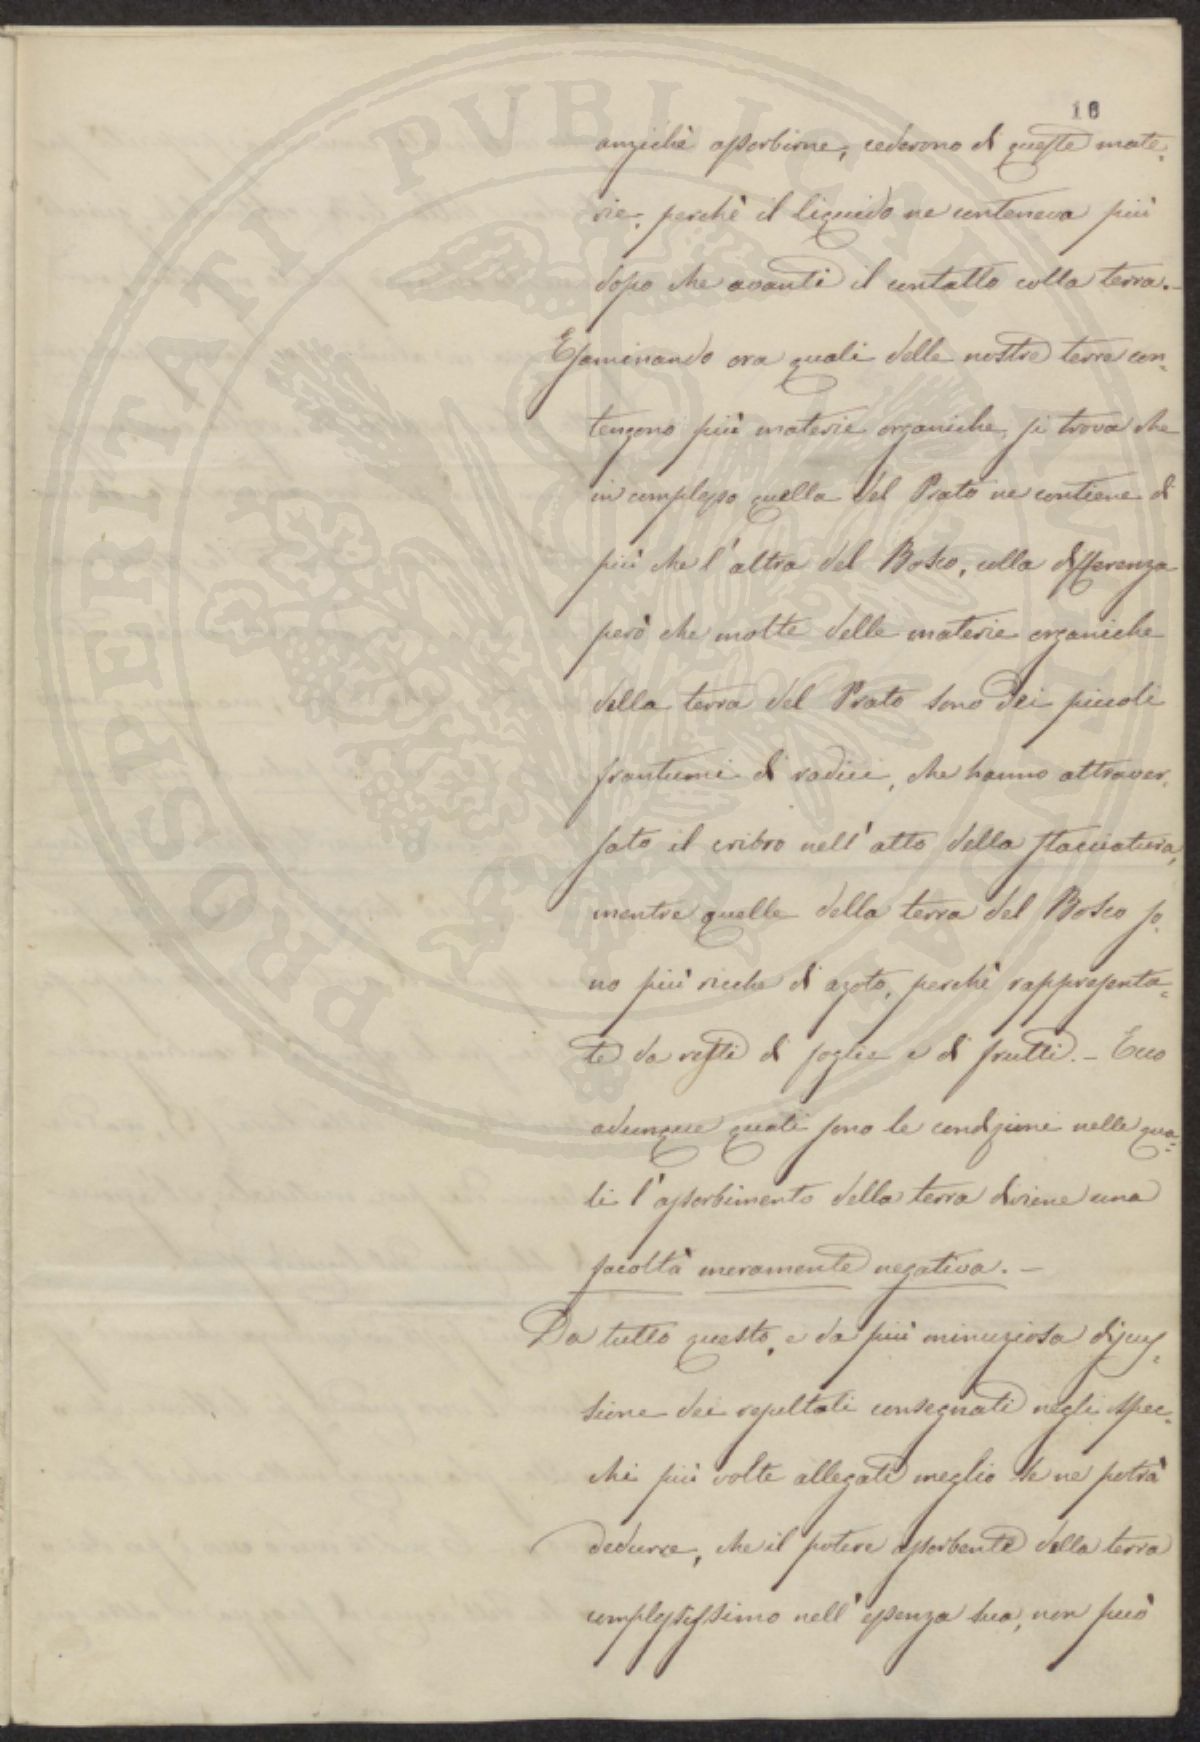 16
PROSPERITATI PUBLICAE AUGENDAE
anzichè assorbirne, cederono di queste mate-
rie, perchè il liquido ne conteneva più
dopo che avanti il contatto colla terra.-
Esaminando ora quali delle nostre terre con-
tengono più materie organiche, si trova che
in complesso quella del Prato ne contiene di
più che l'altra del Bosco, colla differenza
però che molte delle materie organiche
della terra del Prato sono dei piccoli
frantumi di radici, che hanno attraver-
sato il cribro nell'atto della stacciatura,
mentre quelle della terra del Bosco so-
no più ricche di azoto, perchè rappresenta-
te da resti di foglie e di frutti. - Ecco
adunque quali sono le condizioni nelle qua-
li l'assorbimento della terra diviene una
facoltà meramente negativa. -
Da tutto questo, e da più minuziosa discus-
sione dei resultati consegnati negli spec-
chi più volte allegati meglio se ne potrà
dedurre, che il potere assorbente della terra
complessissimo nell'essenza sua, non può